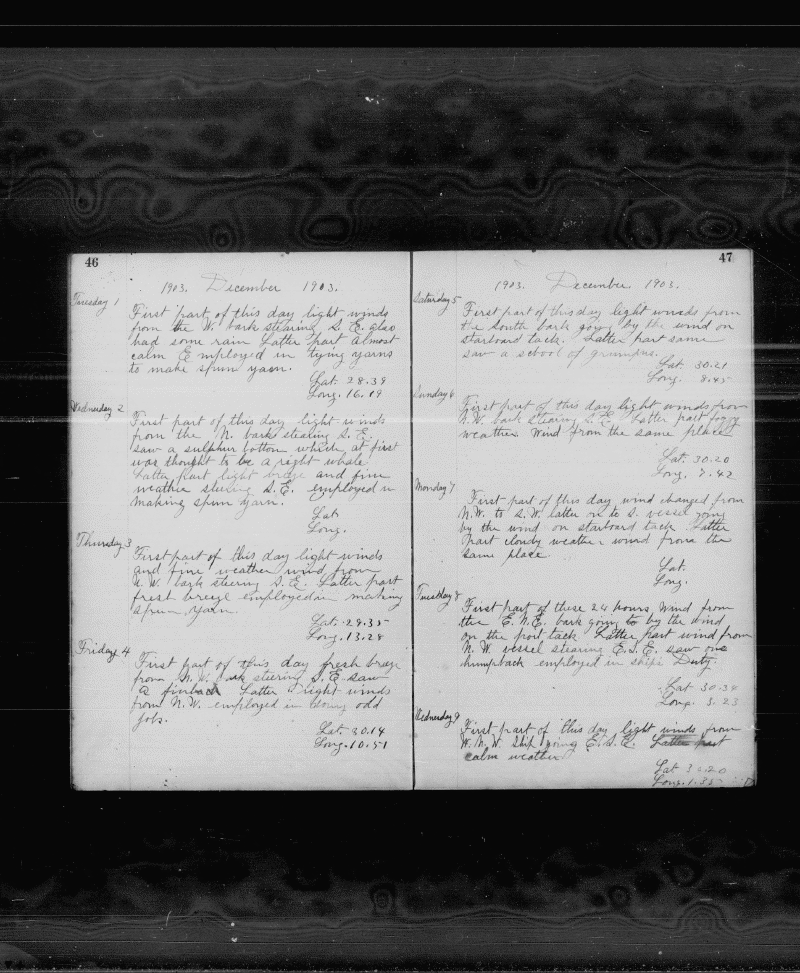 46
1903. December 1903.
Tuesday 1
First part of this day light winds
from the W. bark stearing S. E. also
had some rain Latter part almost
calm Employed in tying yarns
to make spun yarn.
Lat. 28.39
Long. 16.19
Wednesday 2
First part of this day light winds
from the N. bark stearing S. E.
saw a sulphur bottom which at first
was thought to be a right whale
Latter part light breze and fine
weather steering S. E. employed in
making spun yarn.
Lat
Long.
Thursday 3
First part of this day light winds
and fine weather wind from
N. W. bark steering S. E. Latter part
fresh breeze employed in making
spun yarn.
Lat. 29.35
Long. 13.28
Friday 4
First part of this day fresh breze
from N. W. bark steering S. E. saw
a finback Latter light winds
from N. W. employed in doing odd
jobs.
Lat. 30.14
Long. 10.51
47
1903. December 1903.
Saturday 5
First part of this day light winds from
the South bark going by the wind on
starboard tack. Latter part same
saw a school of grampus.
Lat. 30.21
Long. 8.45
Sunday 6
First part of this day light winds from
N. W. bark stearing S. E. Latter part foggy
weather wind from the same place
Lat. 30.20
Long. 7.42
Monday 7
First part of this day wind changed from
N. W. to S. W. latter on to S. vessel going
by the wind on starboard tack Latter
part cloudy weather wind from the
same place.
Lat.
Long.
Tuesday 8
First part of these 24 hours, wind from
the E. N. E. bark going to by the wind
on the port tack Latter part wind from
N. W vessel stearing E. S. E. saw one
humpback employed in ships Duty.
Lat 30.34
Long. 3.23
Wednesday 9
First part of this day light winds from
W. N. W. ship going E. S. E. Latter part
calm weather
Lat 30.20
Long. 1.35